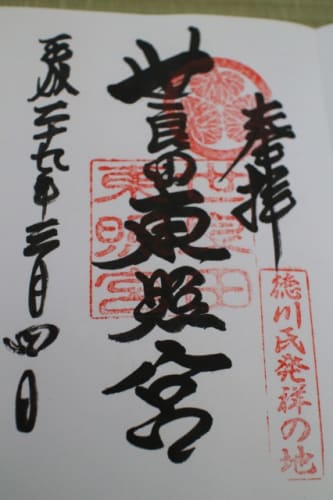 奉拝
徳川氏発祥の地
世良田東照宮
世良田
東照宮
平成二十九年三月四日